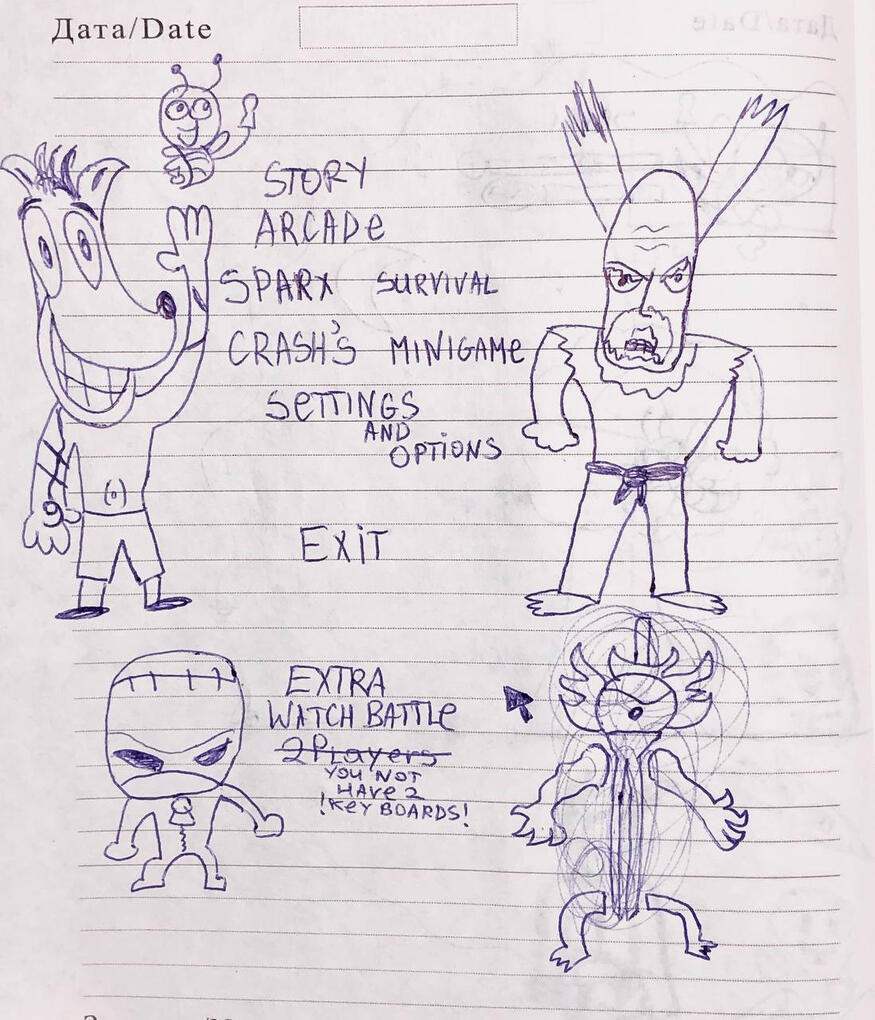 Дата/Date
STORY
ARCADE
SPARX SURVIVAL
CRASH'S MINIGAME
SETTINGS
AND
OPTIONS
EXIT
EXTRA
WATCH BATTLE
2Players
YOU NOT
HAVE 2
!KEYBOARDS!